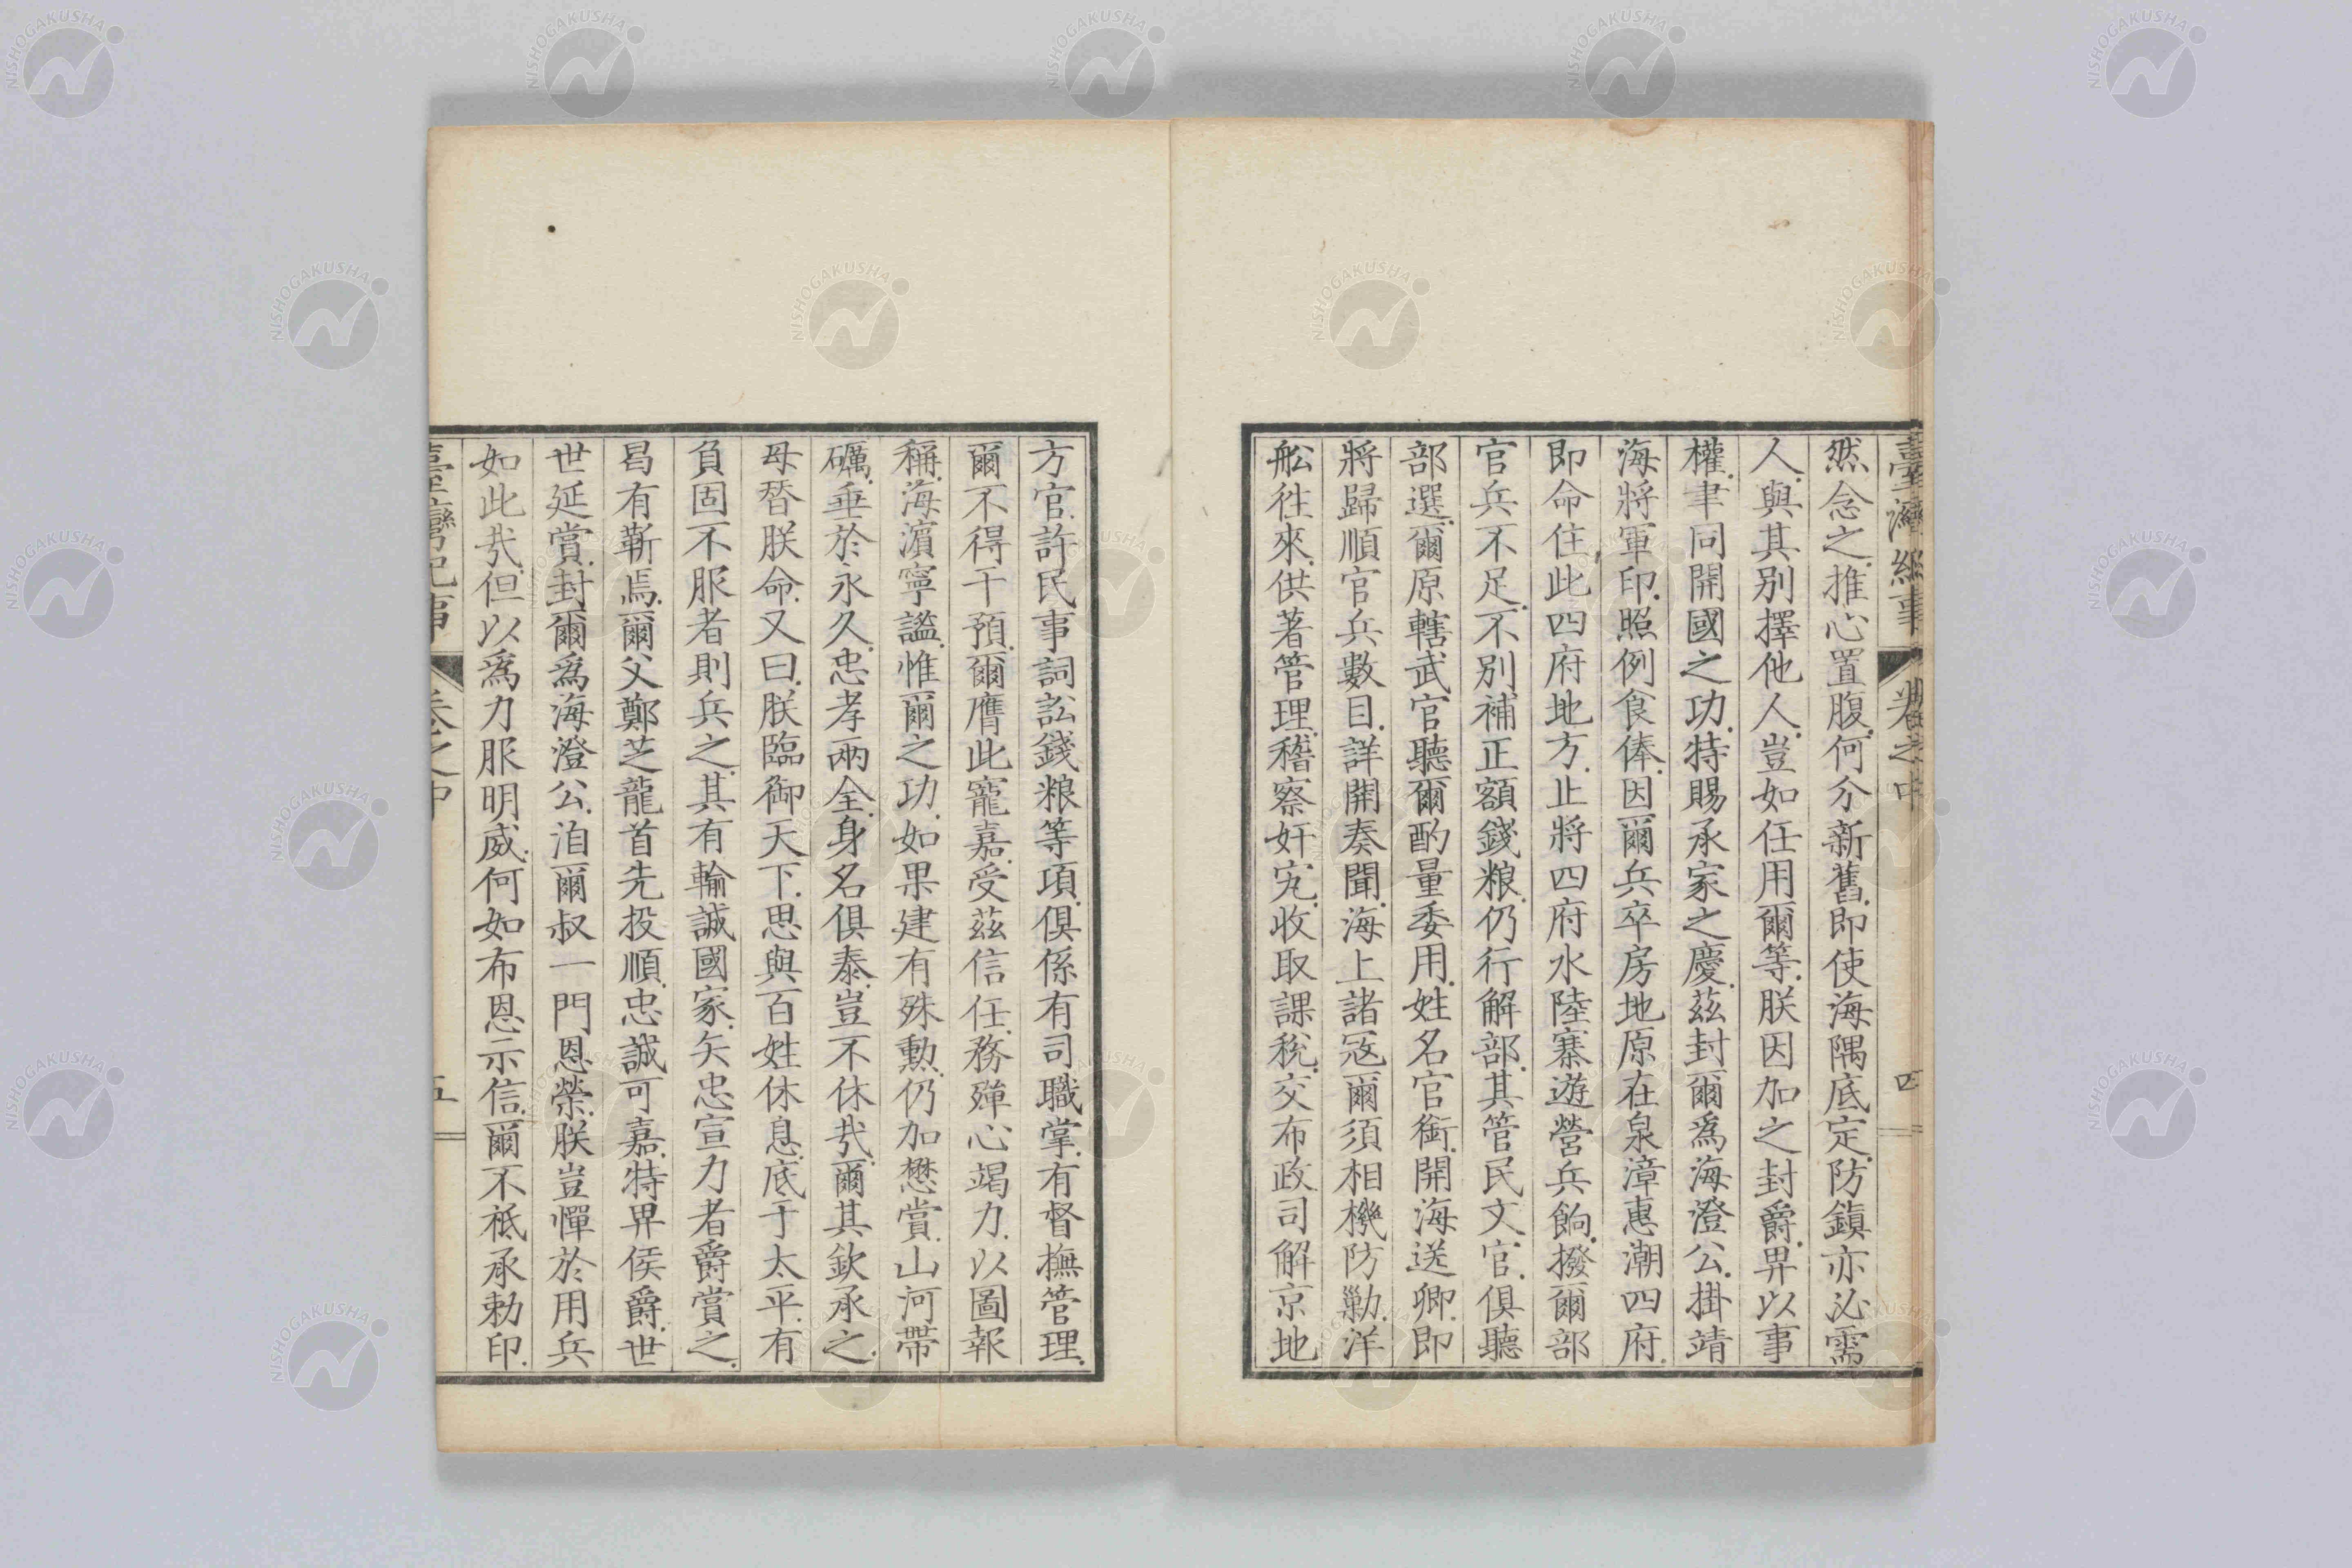 臺灣紀事 卷之中 四
然念之.推心置腹.何分新舊.即使海隅底定.防鎮亦必需
人.與其別擇他人.豈如任用爾等.朕因加之封爵.畀以事
權.聿同開國之功.特賜承家之慶.茲封爾爲海澄公.掛靖
海將軍印.照例食俸.因爾兵卒房地原在泉漳惠潮四府.
即命住此四府地方.止將四府水陸寨遊營兵餉.撥爾部
官兵不足.不別補正額錢粮.仍行解部.其管民文官.俱聽
部選.爾原轄武官聽爾酌量委用.姓名官銜.開海送卿.即
將歸順官兵數目.詳開奏聞.海上諸寇爾須相機防勦.洋
舩徃來.供著管理.稽察奸宄.收取課稅.交布政司解京.地
方官.許民事詞訟錢粮等項.俱係有司職掌.有督撫管理.
爾不得干預.爾膺此寵嘉.受茲信任.務殫心竭力.以圖報
稱.海濵寧謐.惟爾之功.如果建有殊勳.仍加懋賞.山河帶
礪.垂於永久.忠孝兩全.身名俱泰.豈不休㢤.爾其欽承之.
毋替朕命.又曰.朕臨御天下.思與百姓休息.底于太平.有
負固不服者則兵之.其有輸誠國家.矢忠宣力者爵賞之.
曷有靳焉.爾父鄭芝龍首先投順.忠誠可嘉.特畀侯爵.世
世延賞.封爾爲海澄公.洎爾叔一門恩榮.朕豈憚於用兵
如此㢤.但以爲力服明威.何如布恩示信.爾不祗承勅印.
臺灣紀事 卷之中 五
NISHOGAKUSHA